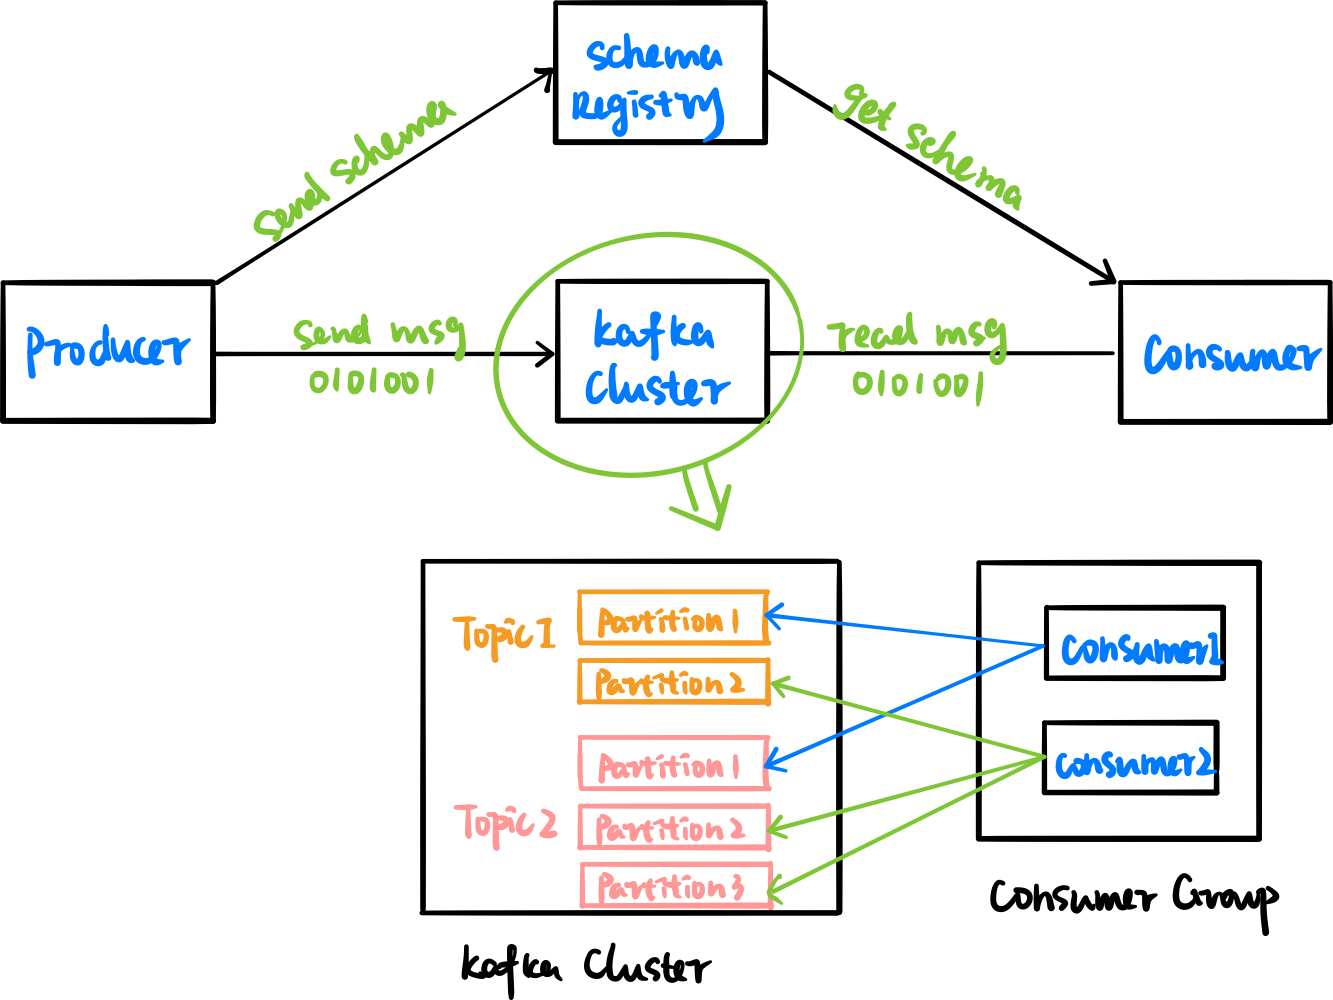 Schema
Registry
Send schema
get schema
Producer
send msg
0101001
Kafka
Cluster
read msg
0101001
Consumer
Topic1
Partition1
Partition2
Topic2
Partition1
Partition2
Partition3
Consumer1
Consumer2
Consumer Group
Kafka Cluster